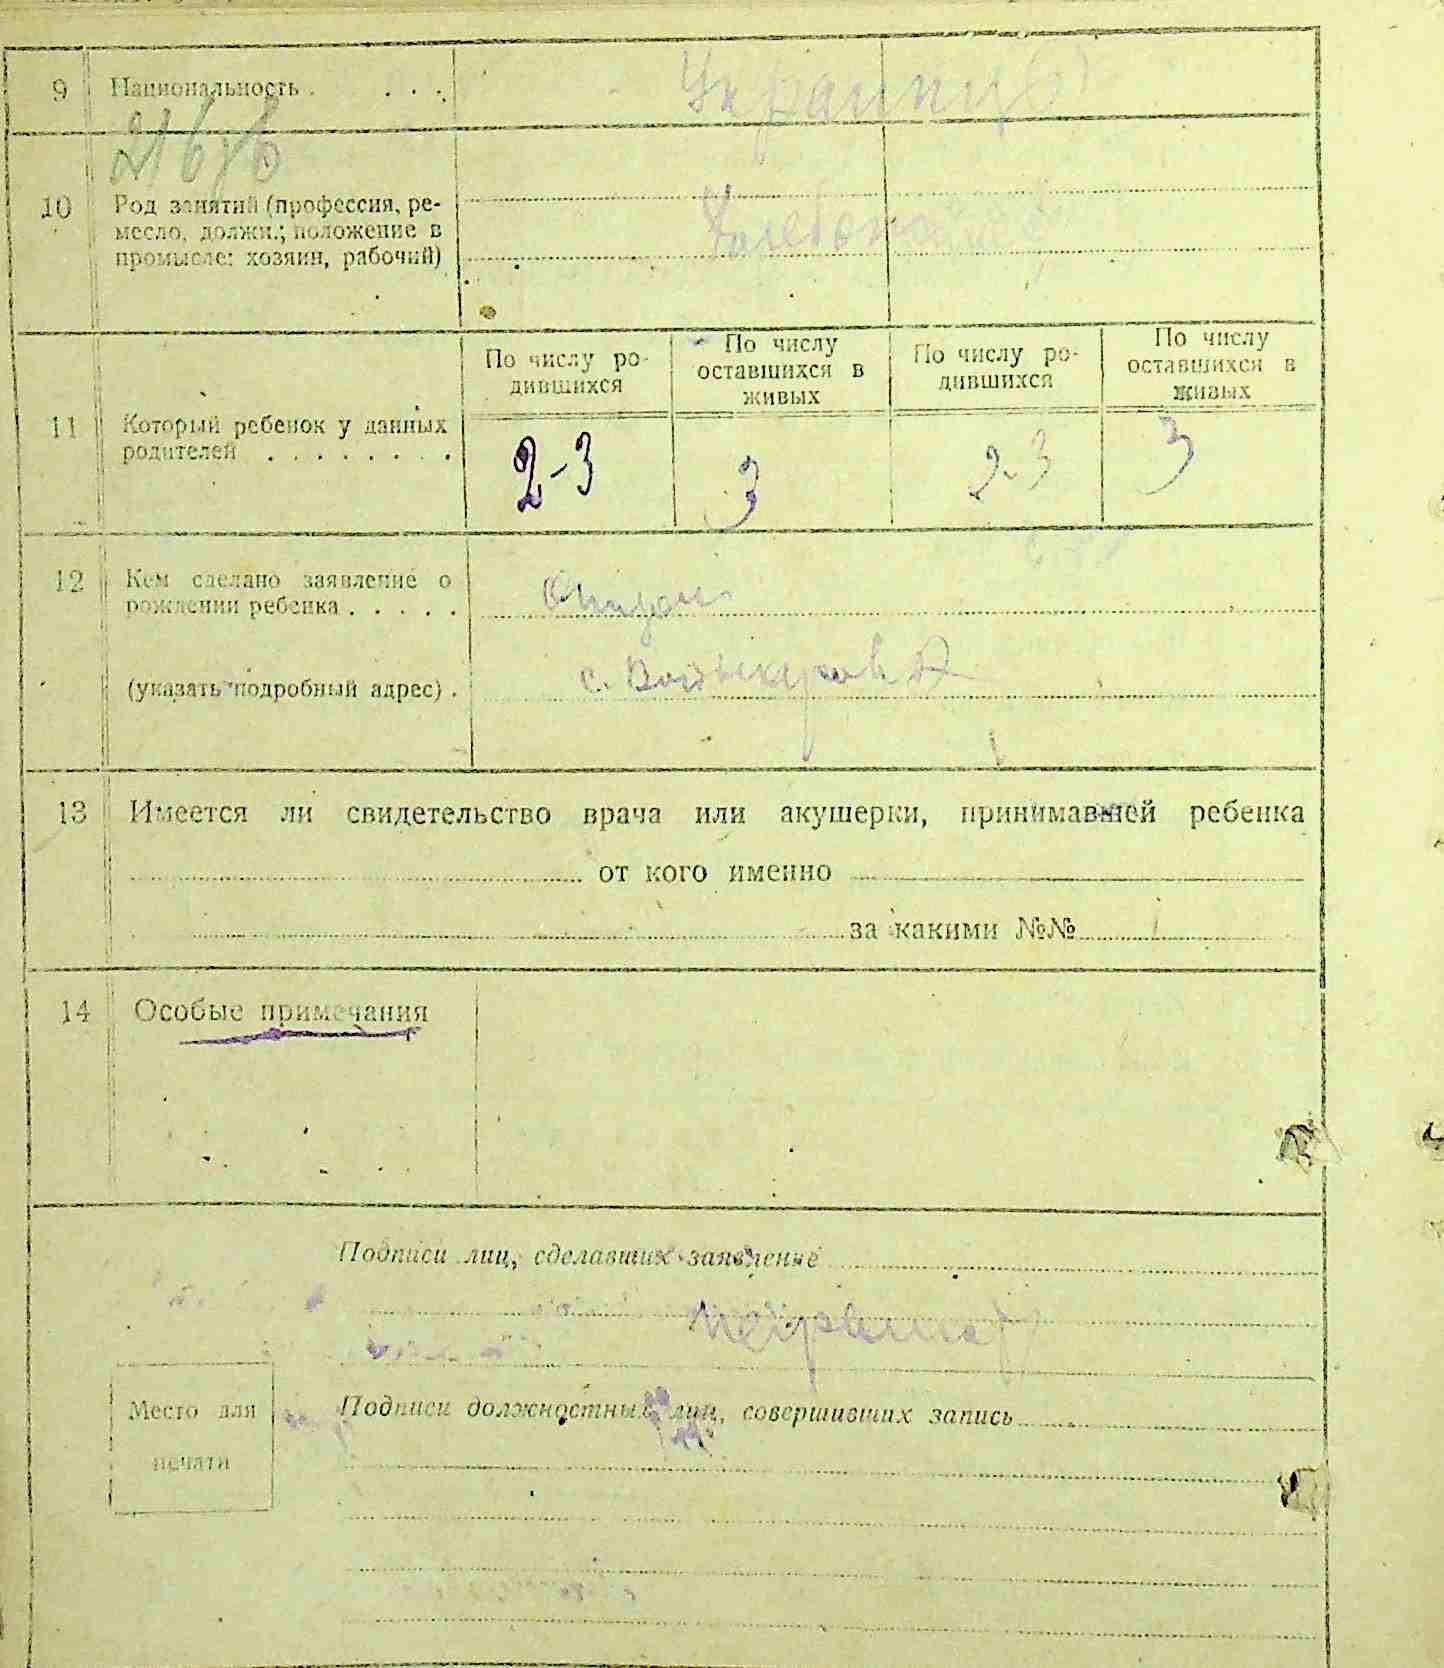 9 Национальность . . . . Украинцы
10 Род занятий (профессия, ре-
месло, должн.; положение в
промысле: хозяин, рабочий)
11 Который ребенок у данных
родителей . . . . . . . .
По числу ро-
дившихся
По числу
оставшихся в
живых
По числу ро-
дившихся
По числу
оставшихся в
живых
2-3 3 2-3 3
12 Кем сделано заявление о
рождении ребенка . . . . .
(указать подробный адрес) . с.
13 Имеется ли свидетельство врача или акушерки, принимавшей ребенка
от кого именно
за какими №№
14 Особые примечания
Подписи лиц, сделавших заявление
Место для
печати
Подписи должностных лиц, совершивших запись